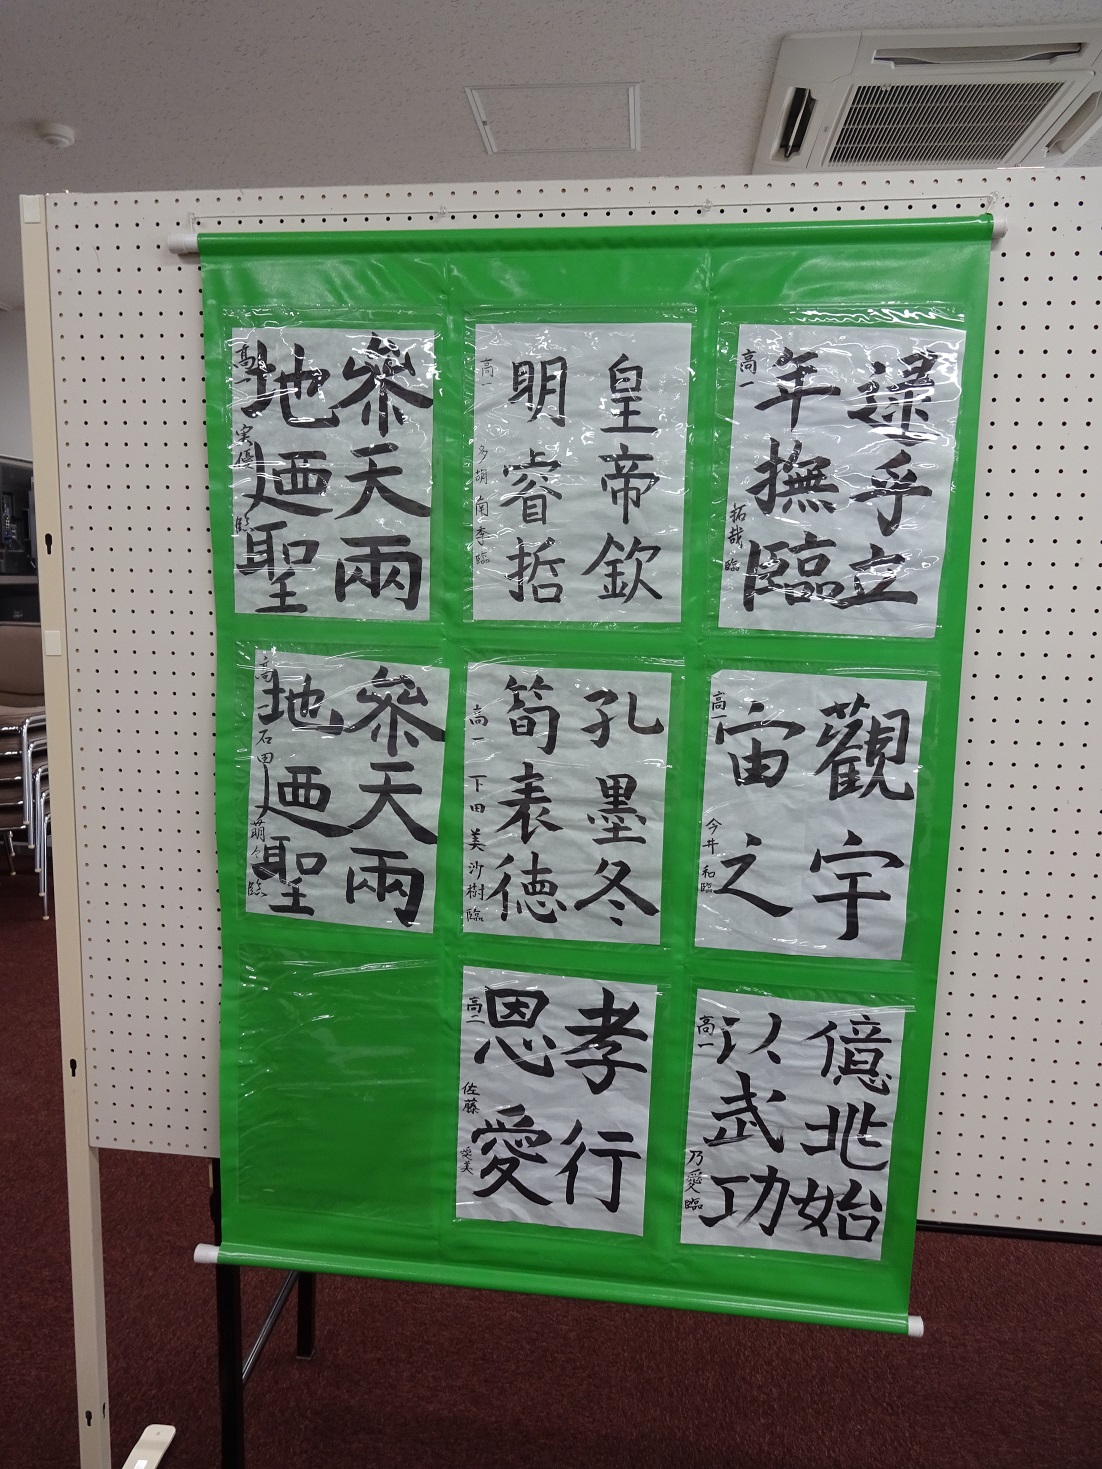 逮乎立
年撫臨
高一 拓哉臨
皇帝欽
明睿哲
高一 多胡 南季臨
參天兩
地迺聖
高一 実優 臨
觀宇
宙之
高一 今井 和臨
孔墨冬
筍表徳
高一 下田 美沙樹臨
參天兩
地迺聖
高一 石田 萌々 臨
億兆始
以武功
高一 乃愛臨
孝行
恩愛
高二 佐藤 愛美